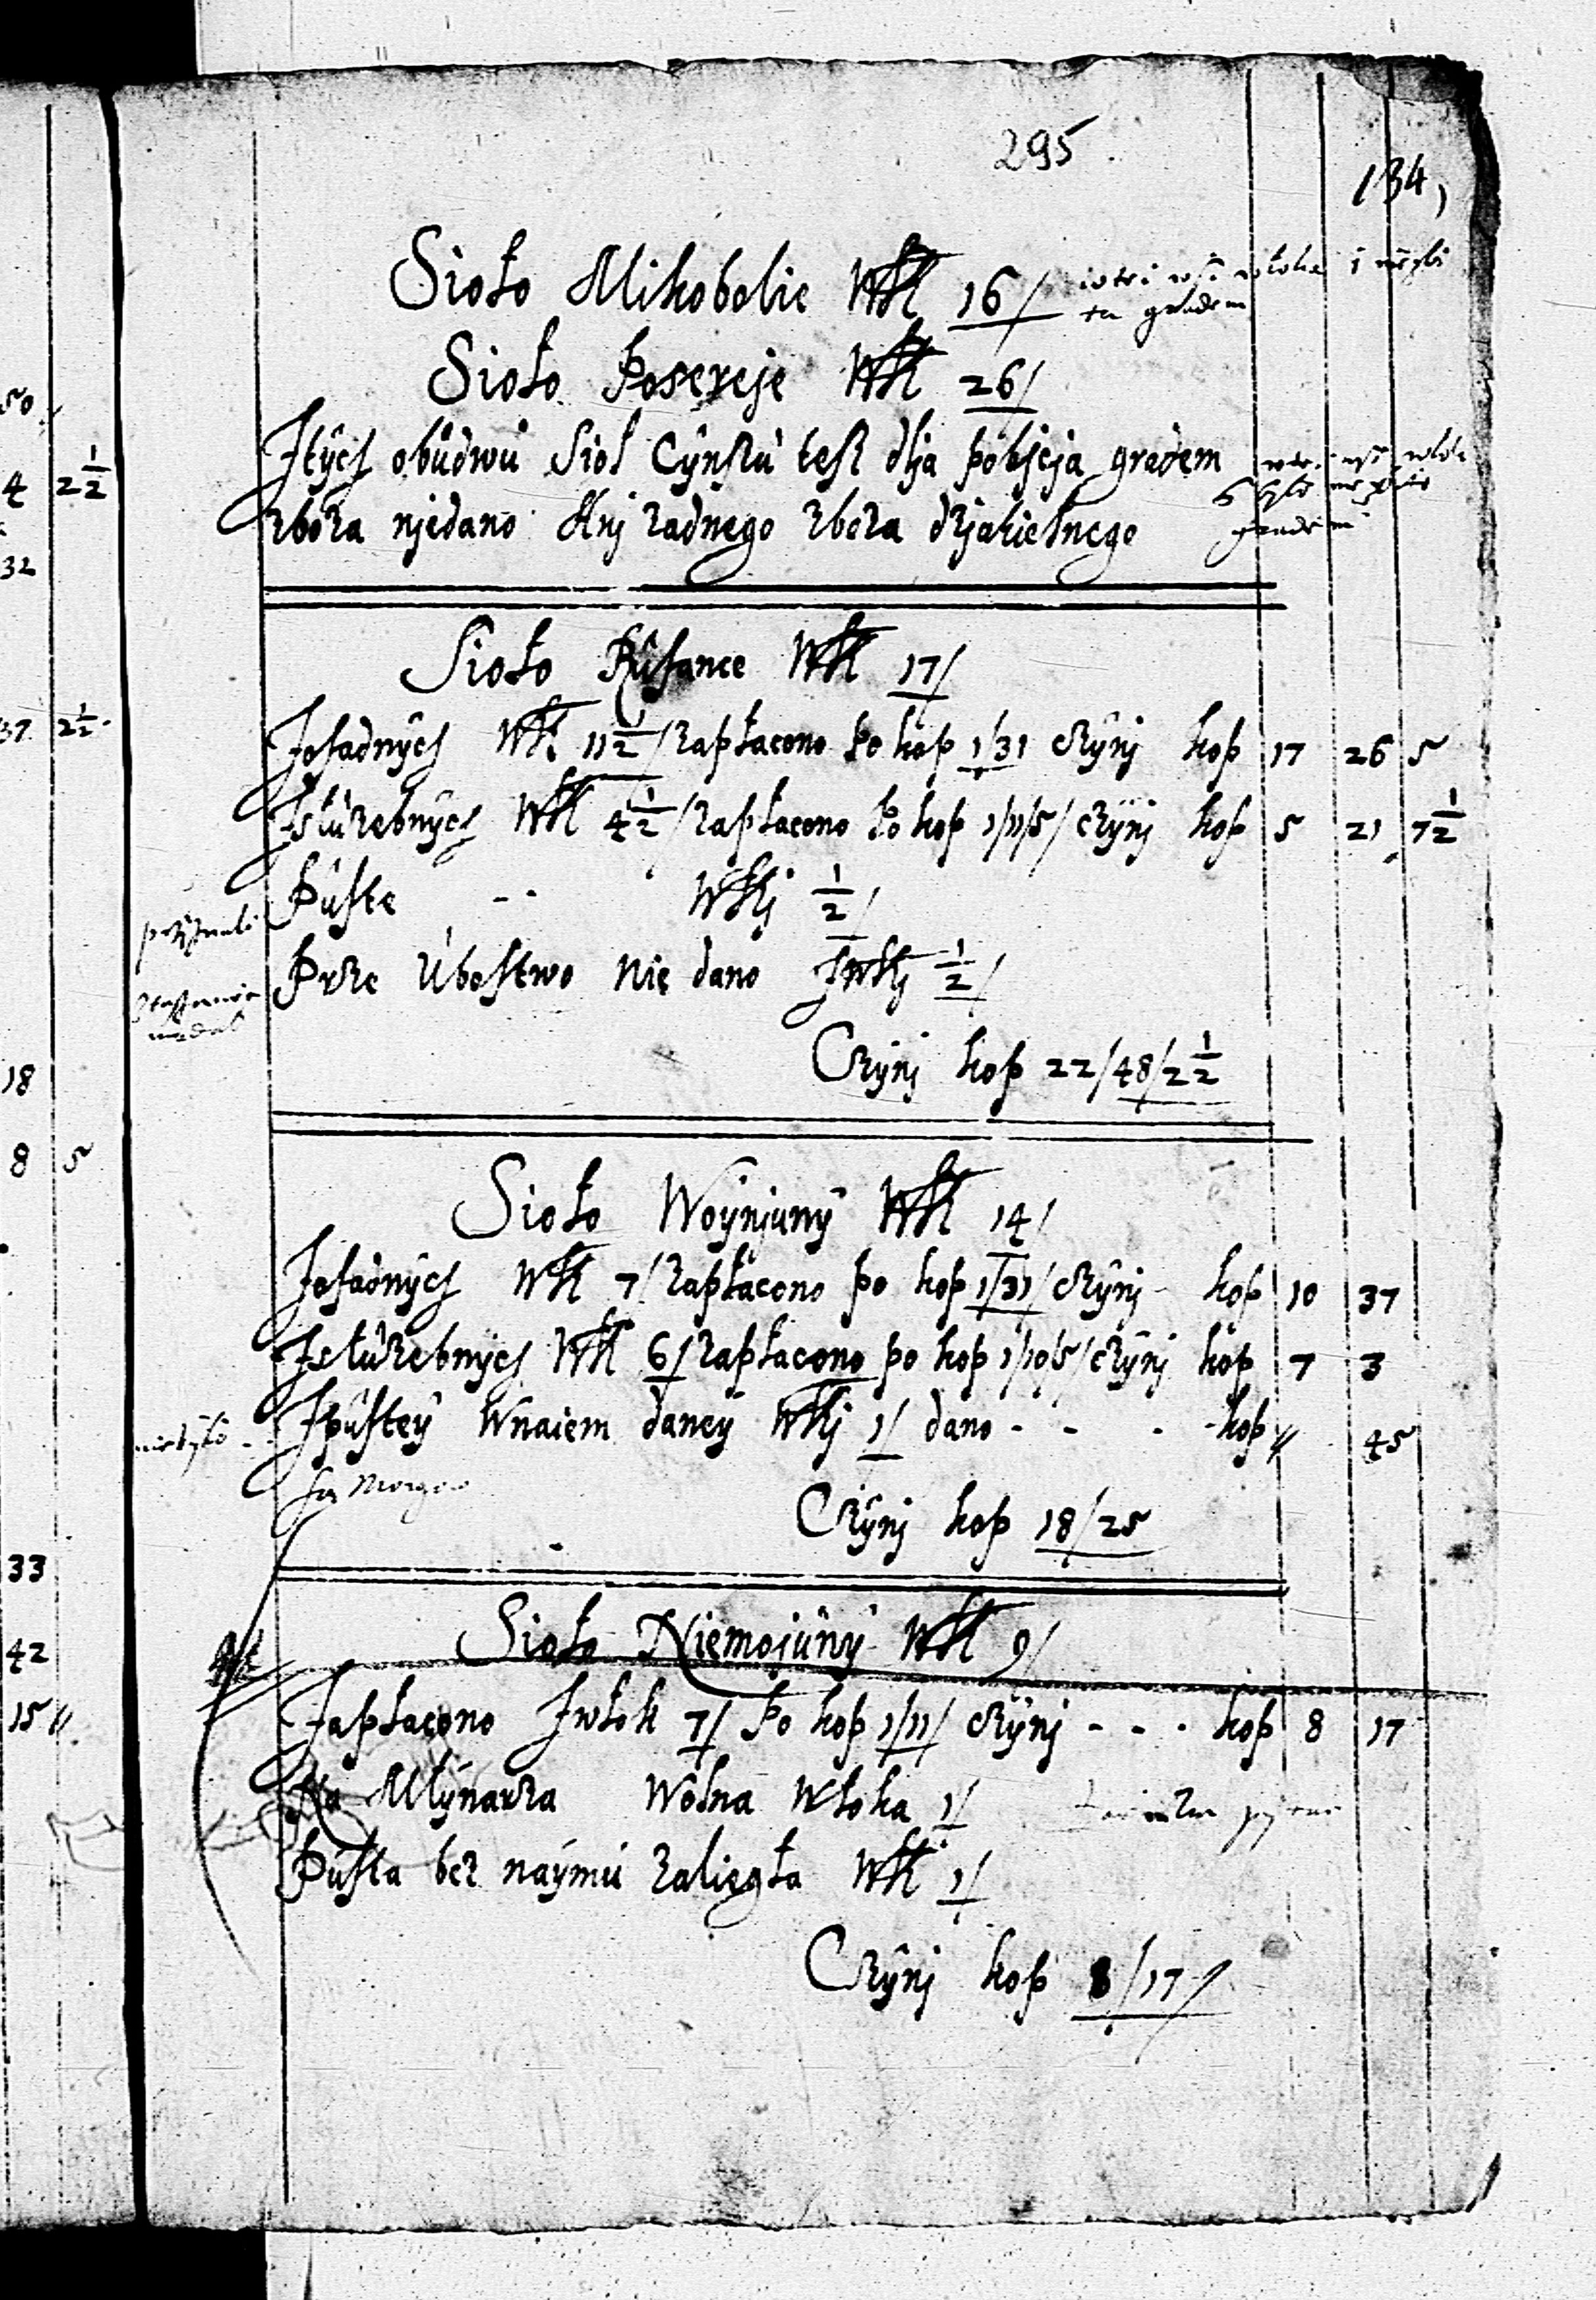 295
134
Sioło Mikobolie Włk 16/
Sioło Posereje Włk 26/
Jtÿch obudwu Sioł Cÿnßu teß dlja pobicja gradem
zboża njedano Anj żadnego zboża dzjakielnego
Sioło Rusance Włk 17/
Josadnÿch Włk 11 1/2 / zapłacono Po kop 1/31 czÿnj kop 17 26 5
Jsłużebnÿch Włk 4 1/2 / zapłacono Po kop 1/11/5/ czÿnj kop 5 21 7 1/2
Puste - - Włkj 1/2 /
Prze Ubostwo Nie dano Jwłkj 1/2 /
Czÿnj kop 22/48/2 1/2
Sioło Woÿnjunÿ Włk 14/
Josadnÿch Włk 7/ zapłacono po kop 1/31/ czÿnj - kop 10 37
Jsłużebnÿch Włk 6/ zapłacono po kop 1/10/5/ czÿnj kop 7 3
Jpusteÿ Wnaiem daneÿ Włkj 1/ dano - - - - kop // 45
Czÿnj kop 18/25
Sioło Niemojunÿ Włk 9/
Zapłacono Zwłok 7/ Po kop 1/11/ czÿnj - - - kop 8 17
Na Młÿnarza Wolna Włoka 1/
Pusta bez naÿmu zaliegła Włk 1/
Czÿnj kop 8/17/
50
4 2 1/2
32
37 2 1/2
18
8 5
33
42
15 //